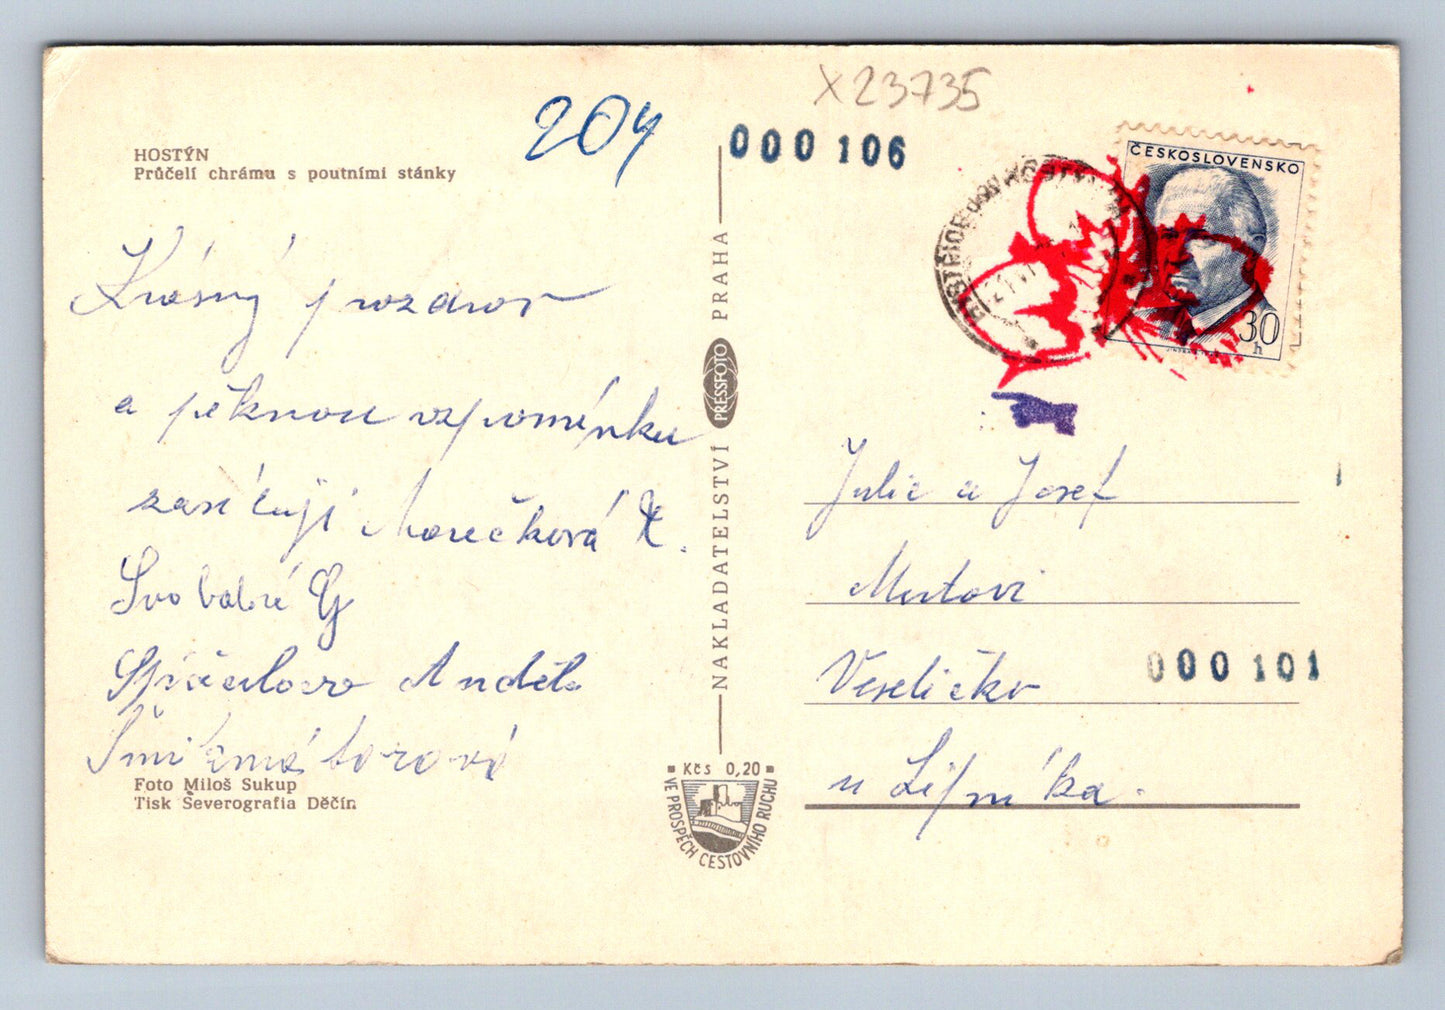 X23735
204
000 106
HOSTÝN
Průčelí chrámu s poutními stánky
ČESKOSLOVENSKO
30
h
BYSTŘICE POD HOSTÝNEM
Krásný pozdrav
a pěknou vzpomínku
zasílají Marečková K.
Svobodová G
Anděla
NAKLADATELSTVÍ PRESSFOTO PRAHA
Julie a Josef
Veselíčko
000 101
u Lipníka.
Foto Miloš Sukup
Tisk Severografia Děčín
Kčs 0,20
VE PROSPĚCH CESTOVNÍHO RUCHU